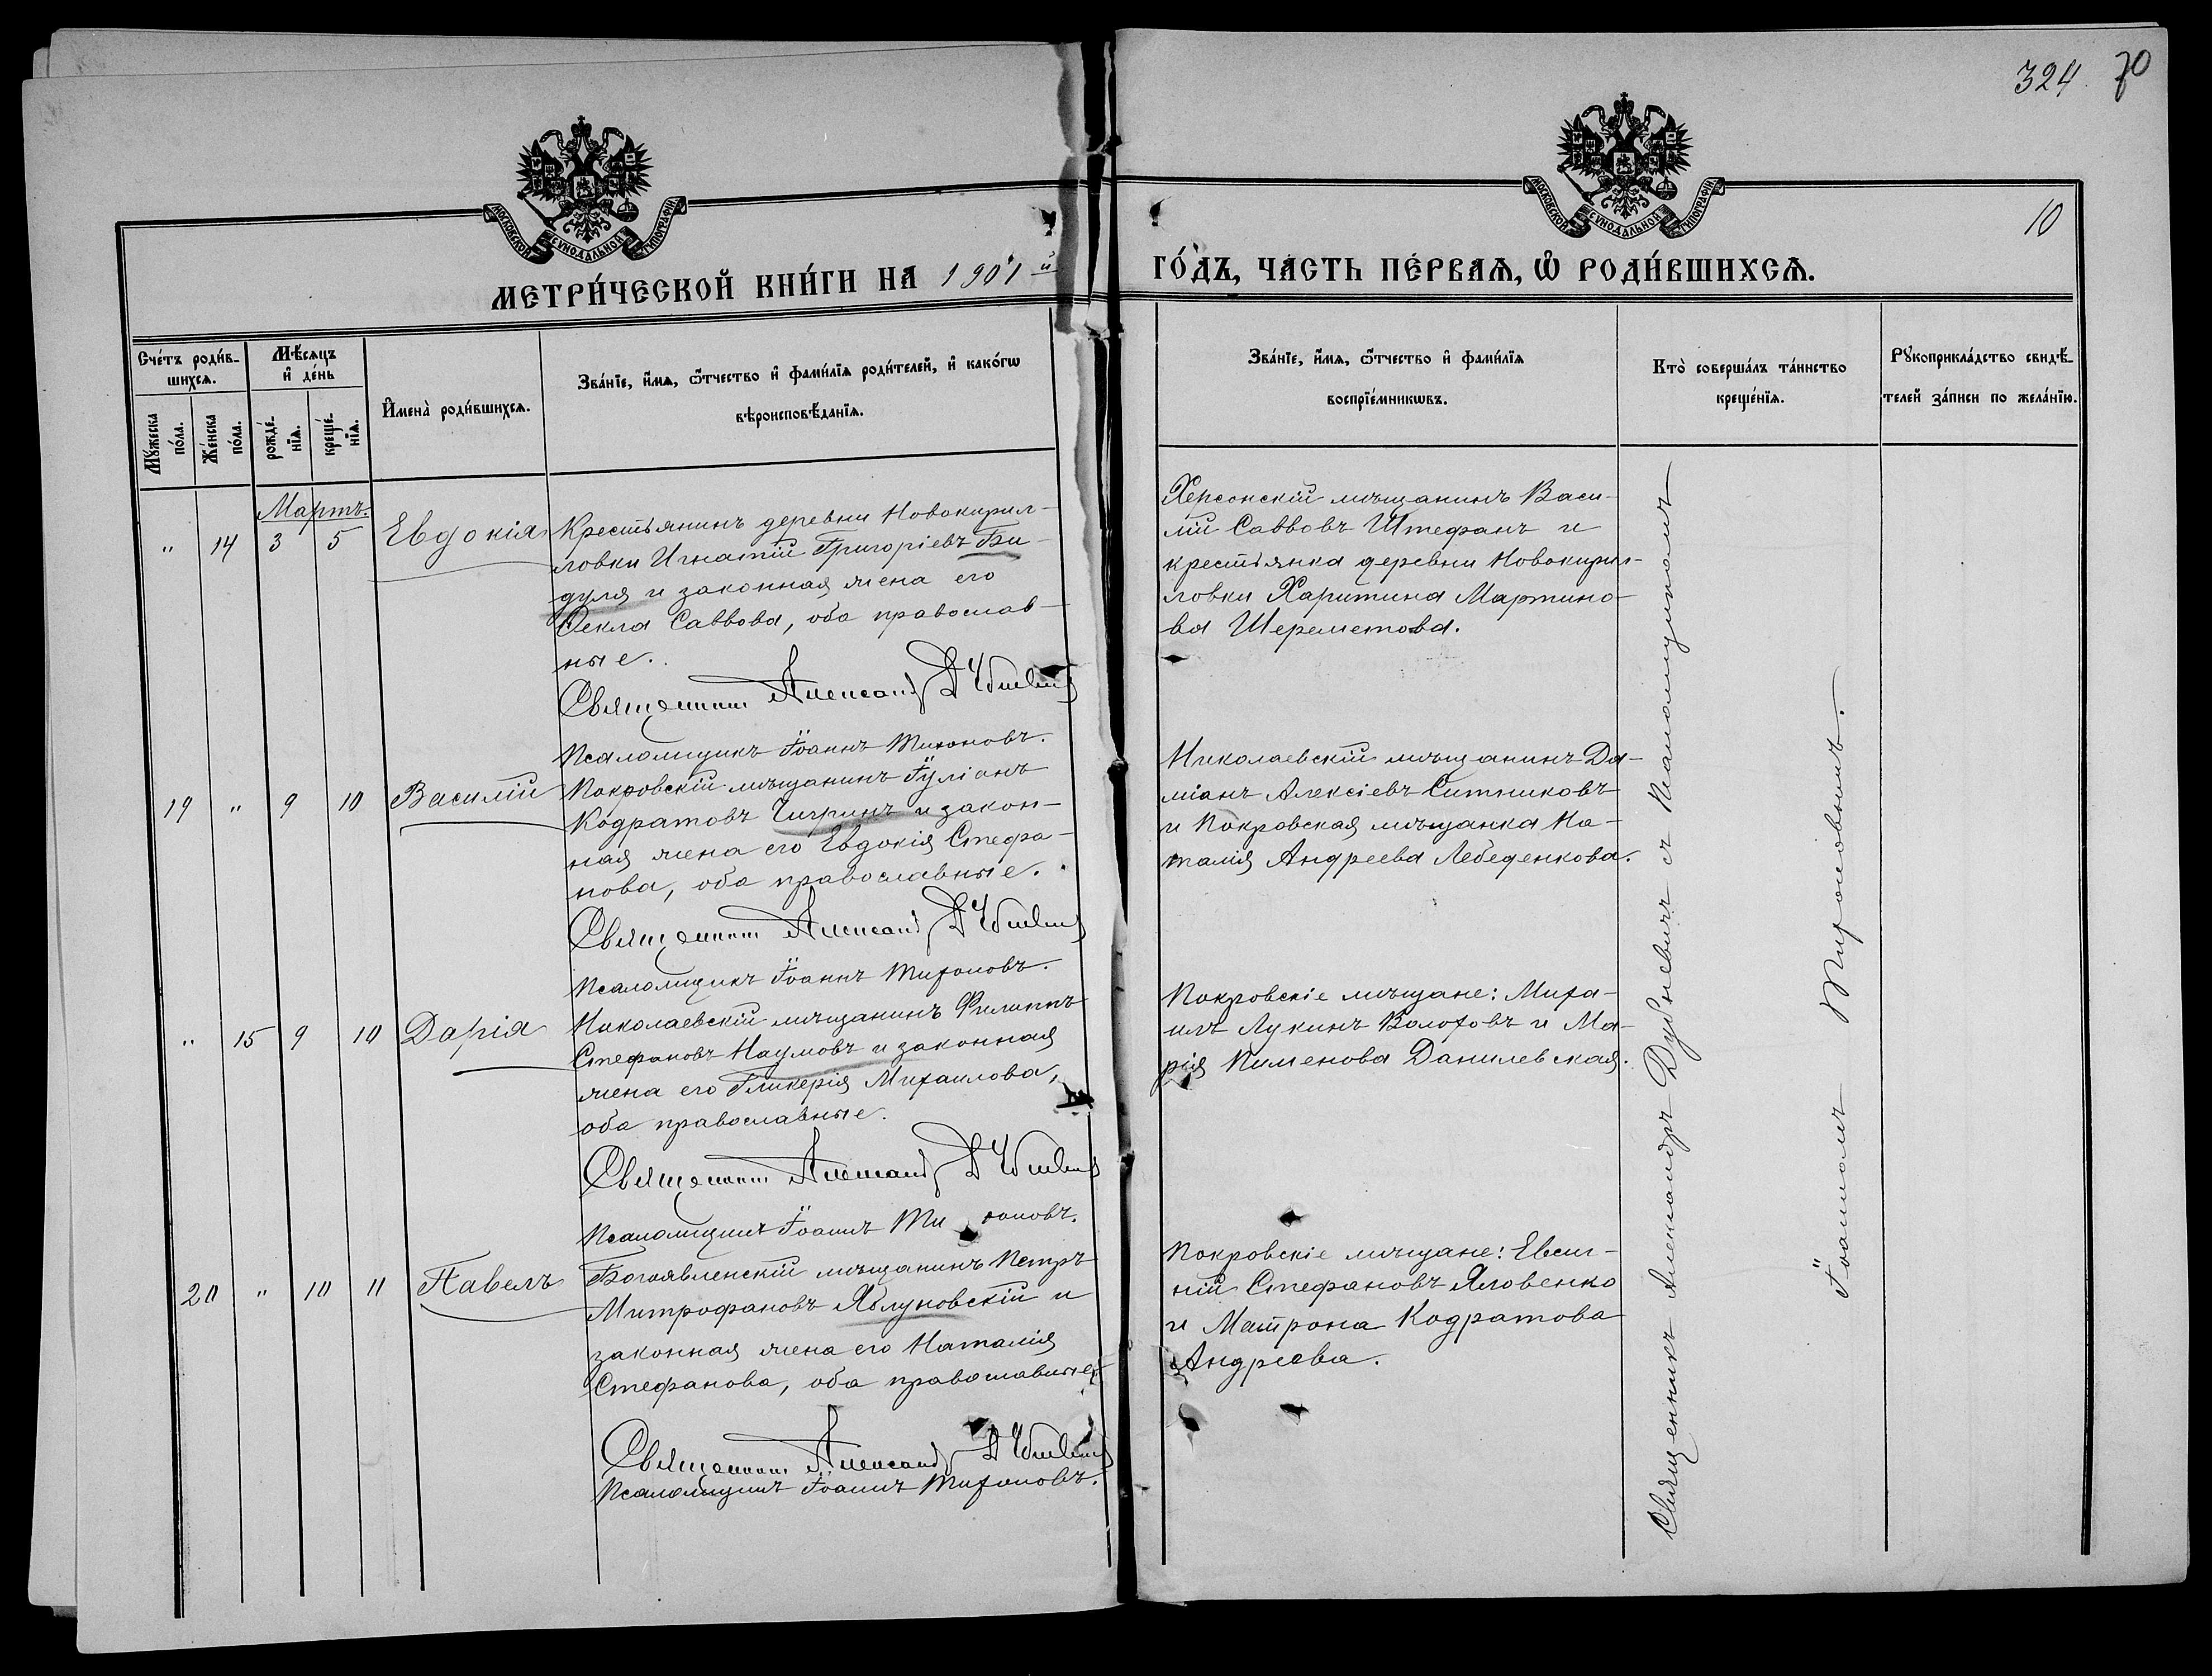 324. 70
МОСКОВСКОЙ СѴНОДАЛЬНОЙ ТИПОГРАФІИ
МОСКОВСКОЙ СѴНОДАЛЬНОЙ ТИПОГРАФІИ
10
МЕТРИ́ЧЕСКОЙ КНИ́ГИ НА 1901 й
ГО́ДЪ, ЧА́СТЬ ПЕ́РВАѦ, Ѡ҆ РОДИ́ВШИХСѦ.
Сче́тъ роди́в-
шихсѧ.
Мꙋ́жеска по́ла.
Же́нска по́ла.
Мѣ́сѧцъ
и҆ де́нь
рожде́-
нїѧ.
креще́-
нїѧ.
И҆мена̀ роди́вшихсѧ.
Зва́нїе, и҆́мѧ, ѻ҆́тчество и҆ фами́лїѧ роди́телей, и҆ како́гѡ
вѣроисповѣ́данїѧ.
Зва́нїе, и҆́мѧ, ѻ҆́тчество и҆ фами́лїѧ
воспрїе́мникѡвъ.
Кто̀ соверша́лъ та́инство
креще́нїѧ.
Рꙋкоприкла́дство свидѣ́-
телей за́писи по жела́нїю.
Мартъ.
" 14 3 5 Евдокія
Крестьянинъ деревни Новокирил-
ловки Игнатій Григоріевъ Би-
дуля и законная жена его
Ѳекла Саввова, оба православ-
ные.
Священникъ Александръ Дубневичъ
Псаломщикъ Іоаннъ Тихоновъ.
Херсонскій мѣщанинъ Васи-
лій Саввовъ Штефанъ и
крестьянка деревни Новокирил-
ловки Харитина Мартино-
ва Шереметова.
19 " 9 10 Василій
Покровскій мѣщанинъ Іуліанъ
Кодратовъ Чигринъ и закон-
ная жена его Евдокія Стефа-
нова, оба православные.
Священникъ Александръ Дубневичъ
Псаломщикъ Іоаннъ Тихоновъ.
Николаевскій мѣщанинъ Да-
міанъ Алексіевъ Ситниковъ
и Покровская мѣщанка На-
талія Андреева Лебеденкова.
" 15 9 10 Дарія
Николаевскій мѣщанинъ Филиппъ
Стефановъ Наумовъ и законная
жена его Гликерія Михаилова,
оба православные.
Священникъ Александръ Дубневичъ
Псаломщикъ Іоаннъ Тихоновъ.
Покровскіе мѣщане: Миха-
илъ Лукинъ Волоховъ и Ма-
рія Пименова Данилевская.
20 " 10 11 Павелъ
Богоявленскій мѣщанинъ Петръ
Митрофановъ Яблуновскій и
законная жена его Наталія
Стефанова, оба православные.
Священникъ Александръ Дубневичъ
Псаломщикъ Іоаннъ Тихоновъ.
Покровскіе мѣщане: Евсиг-
ній Стефановъ Яловенко
и Матрона Кодратова
Андреева.
Священникъ Александръ Дубневичъ съ Псаломщикомъ
Іоанномъ Тихоновымъ.